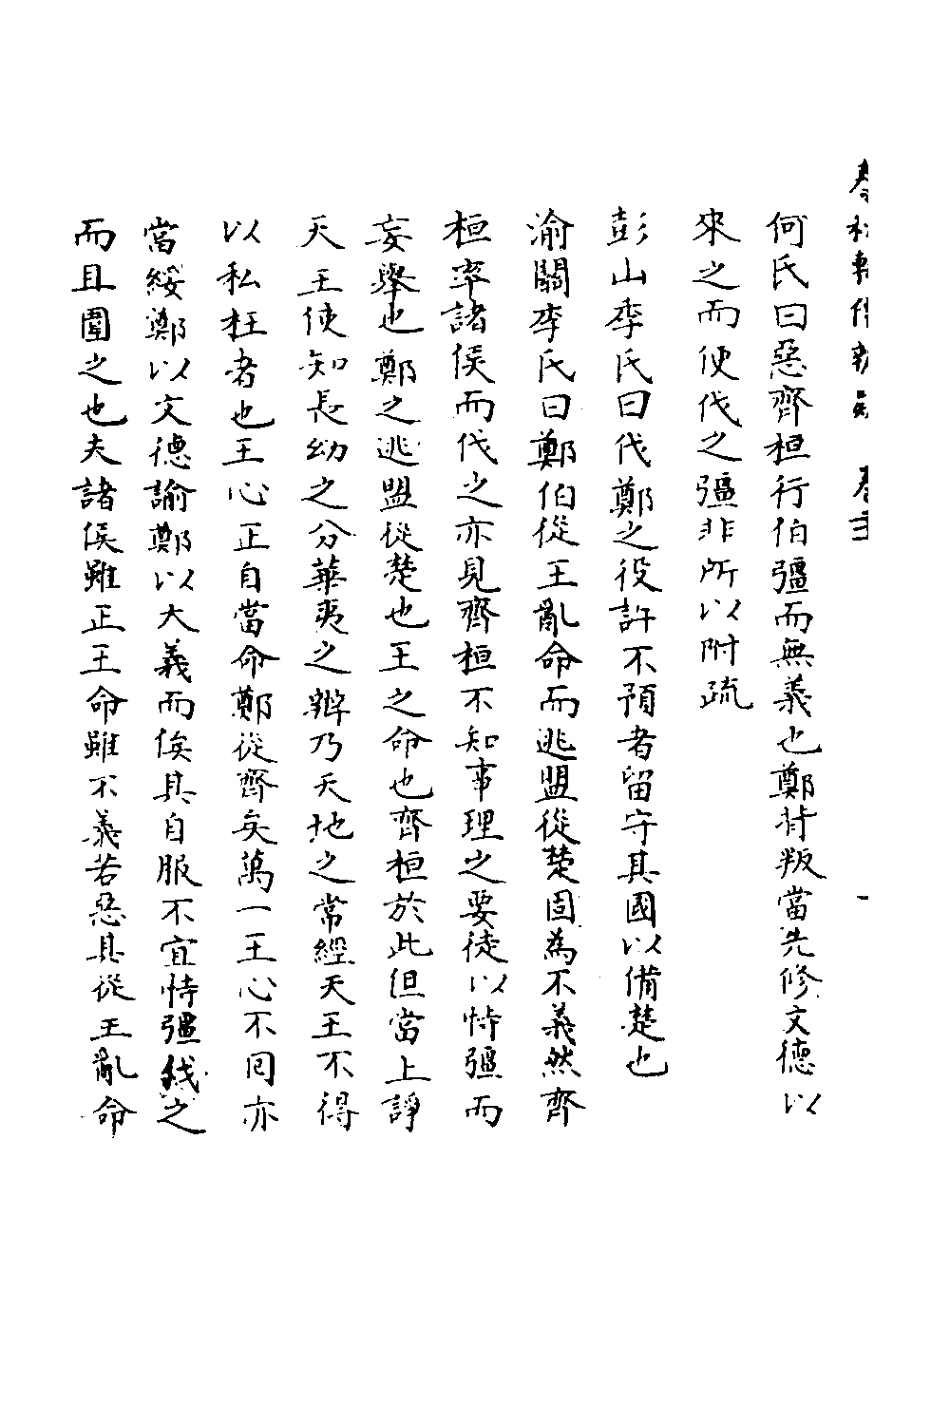 何氏曰惡齊桓行伯彊而無義也鄭背叛當先修文德以
來之而便伐之彊非所以附疏
彭山季氏曰伐鄭之役許不預者留守其國以備楚也
渝關李氏曰鄭伯從王亂命而逃盟從楚固為不義然齊
桓率諸侯而伐之亦見齊桓不知事理之要徒以恃彊而
妄舉也鄭之逃盟從楚也王之命也齊桓於此但當上諍
天王使知長幼之分華夷之辨乃天地之常經天王不得
以私枉者也王心正自當命鄭從齊矣萬一王心不囘亦
當綏鄭以文德諭鄭以大義而俟其自服不宜恃彊伐之
而且圍之也夫諸侯雖正王命雖不義若惡其從王亂命